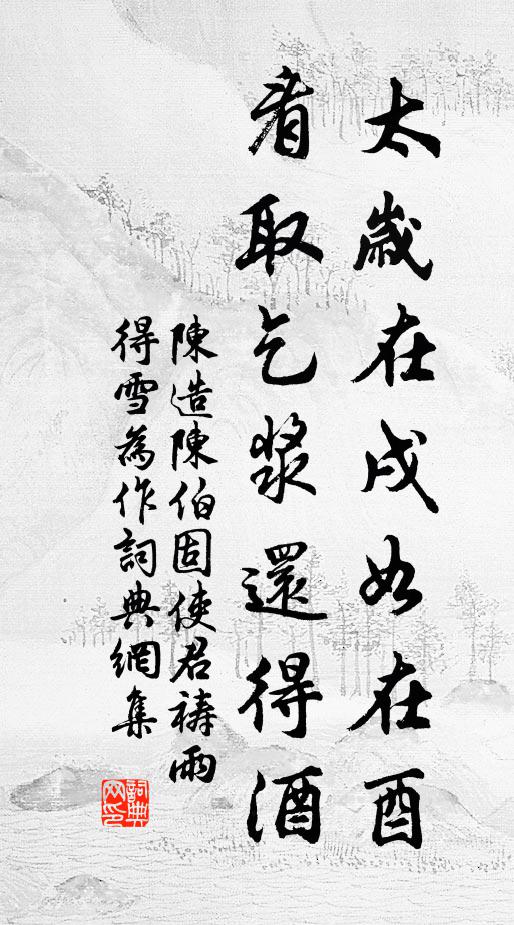 太歲在戌如在酉
看取乞漿還得酒
陳造陳伯固使君禱雨
得雪為作詞典網集
詞典
网印